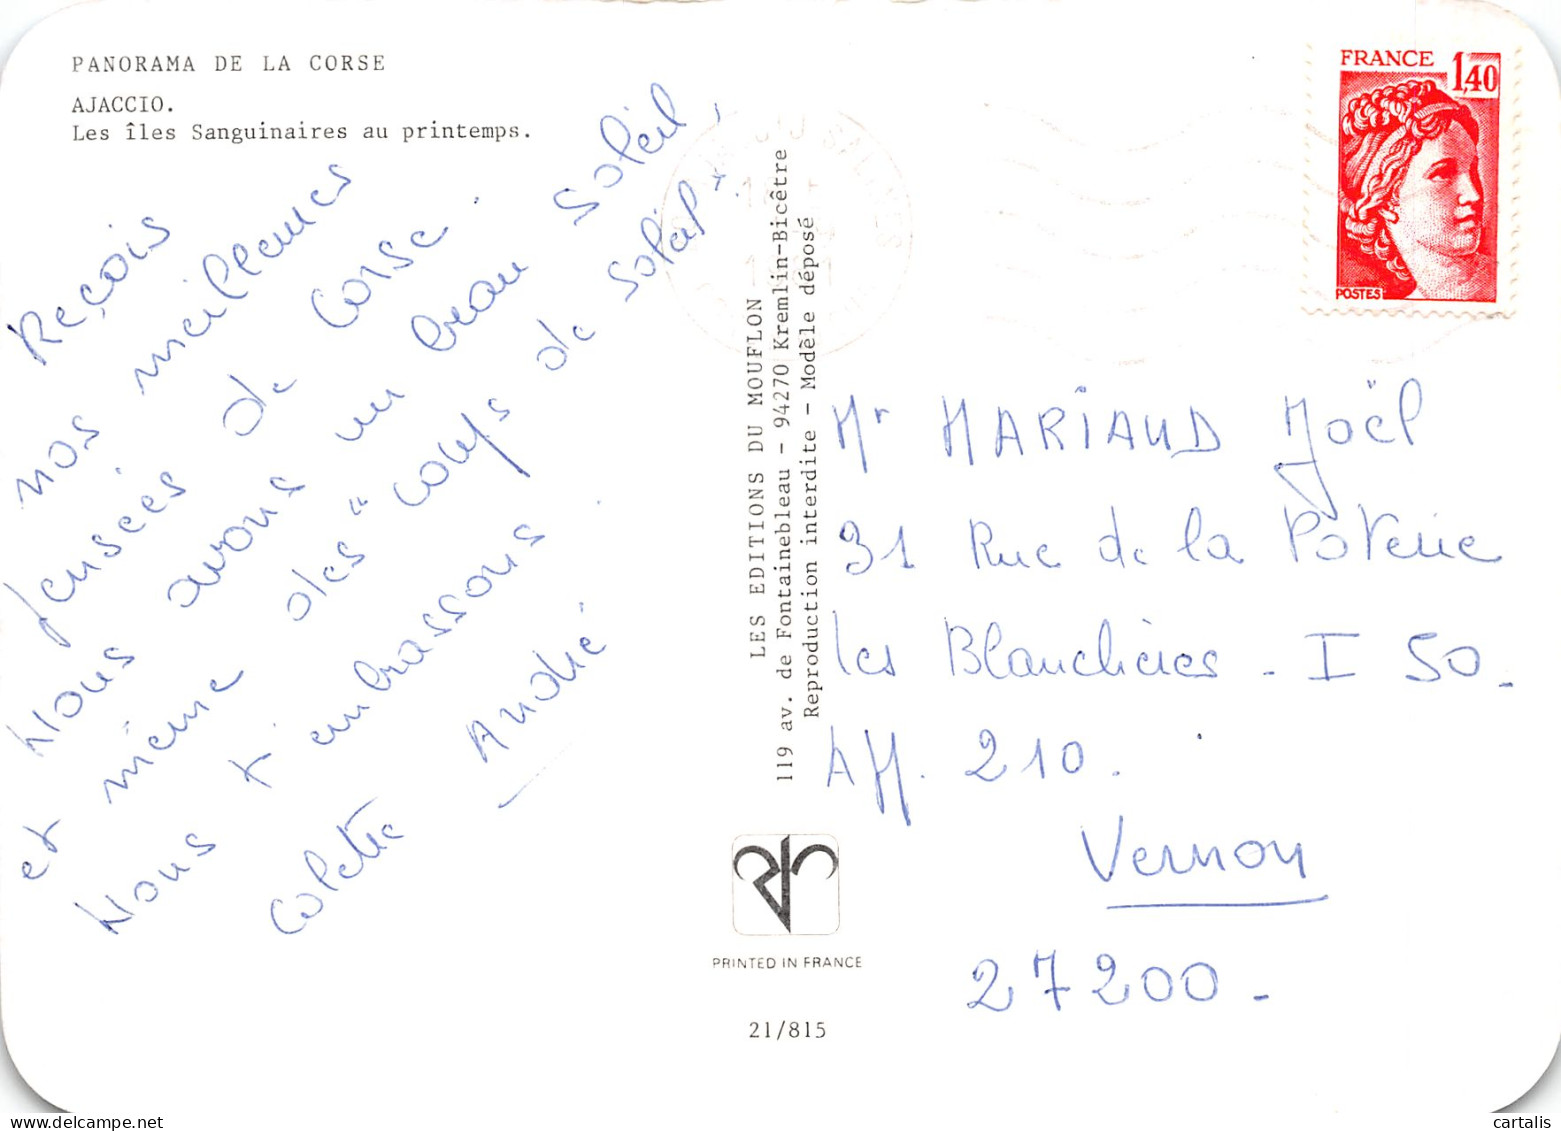 PANORAMA DE LA CORSE
AJACCIO.
Les îles Sanguinaires au printemps.
Reçois
nos meilleures
pensées de Corse.
Nous avons un beau soleil,
et même des "coups de soleil".
Nous t'embrassons.
Colette André
LES EDITIONS DU MOUFLON
119 av. de Fontainebleau - 94270 Kremlin-Bicêtre
Reproduction interdite - Modèle déposé
PRINTED IN FRANCE
21/815
FRANCE 1,40
POSTES
Mr MARIAUD Joël
31 Rue de la Poterie
les Blanchères - I 50.
AH. 210.
Vernon
27200.
www.delcampe.net
cartalis